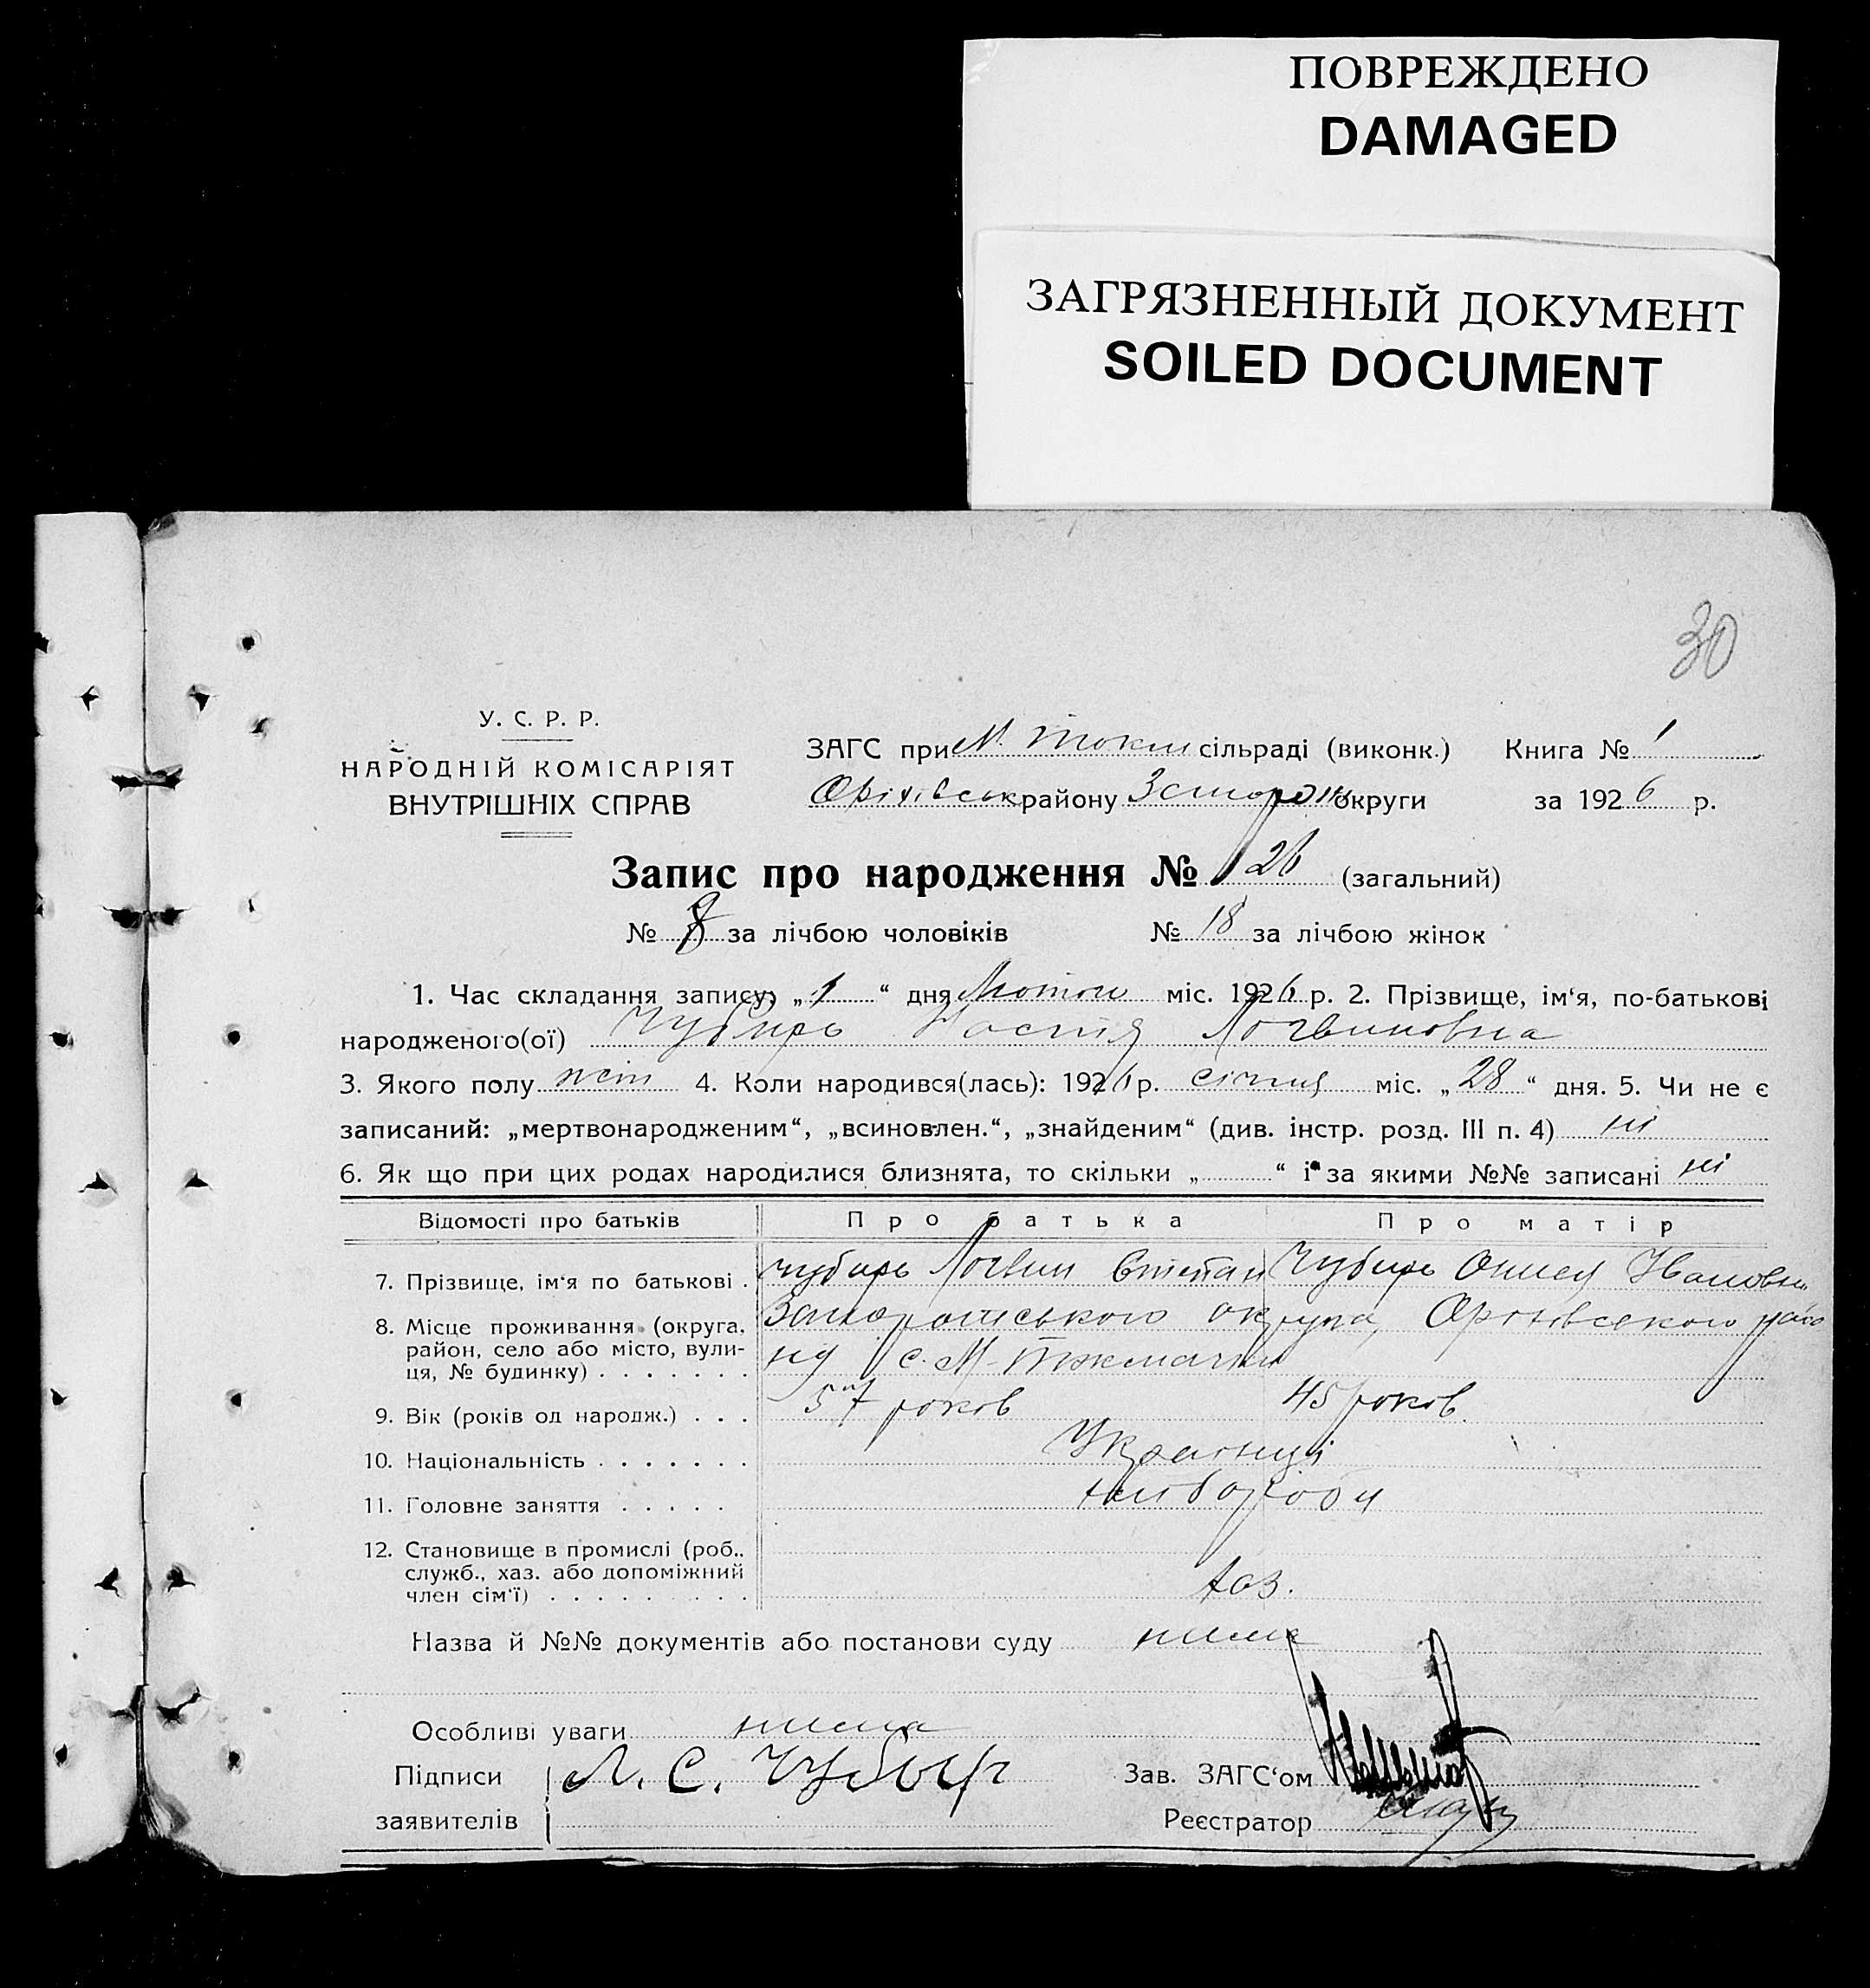 ПОВРЕЖДЕНО
DAMAGED
ЗАГРЯЗНЕННЫЙ ДОКУМЕНТ
SOILED DOCUMENT
30
У. С. Р. Р.
НАРОДНІЙ КОМІСАРІЯТ
ВНУТРІШНІХ СПРАВ
ЗАГС при М. Токм сільраді (виконк.) Книга № 1
Оріхівськ району Запоріж округи за 1926 р.
Запис про народження № 26 (загальний)
№ 8 за лічбою чоловіків № 18 за лічбою жінок
1. Час складання запису: „1“ дня Лютого міс. 1926 р. 2. Прізвище, ім'я, по-батькові
народженого(ої) Чубирь Настя Логвиновна
3. Якого полу жін 4. Коли народився(лась): 1926 р. січня міс. „28“ дня. 5. Чи не є
записаний: „мертвонародженим“, „всиновлен.“, „знайденим“ (див. інстр. розд. III п. 4) ні
6. Як що при цих родах народилися близнята, то скільки „ “ і за якими №№ записані ні
Відомості про батьків Про батька Про матір
7. Прізвище, ім'я по батькові . Чубирь Логвин Степан Чубирь Онися Ивановн
8. Місце проживання (округа, район, село або місто, вулиця, № будинку) . . . . . . . округа, Оріхівського
с. М-
9. Вік (років од народж.) . . . 57 років 45 років
10. Національність . . . . . . . Українці
11. Головне заняття . . . . . хлібороби
12. Становище в промислі (роб.,
служб., хаз. або допоміжний
член сім'ї) . . . . . . . . . хаз.
Назва й №№ документів або постанови суду нима
Особливі уваги нима
Підписи Л. С. Чубыр Зав. ЗАГС'ом
заявителів Реєстратор